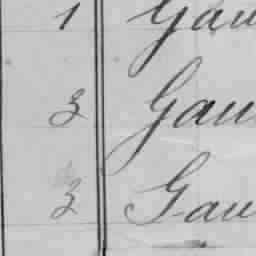 1 Gau
3 Gau
3 Gau